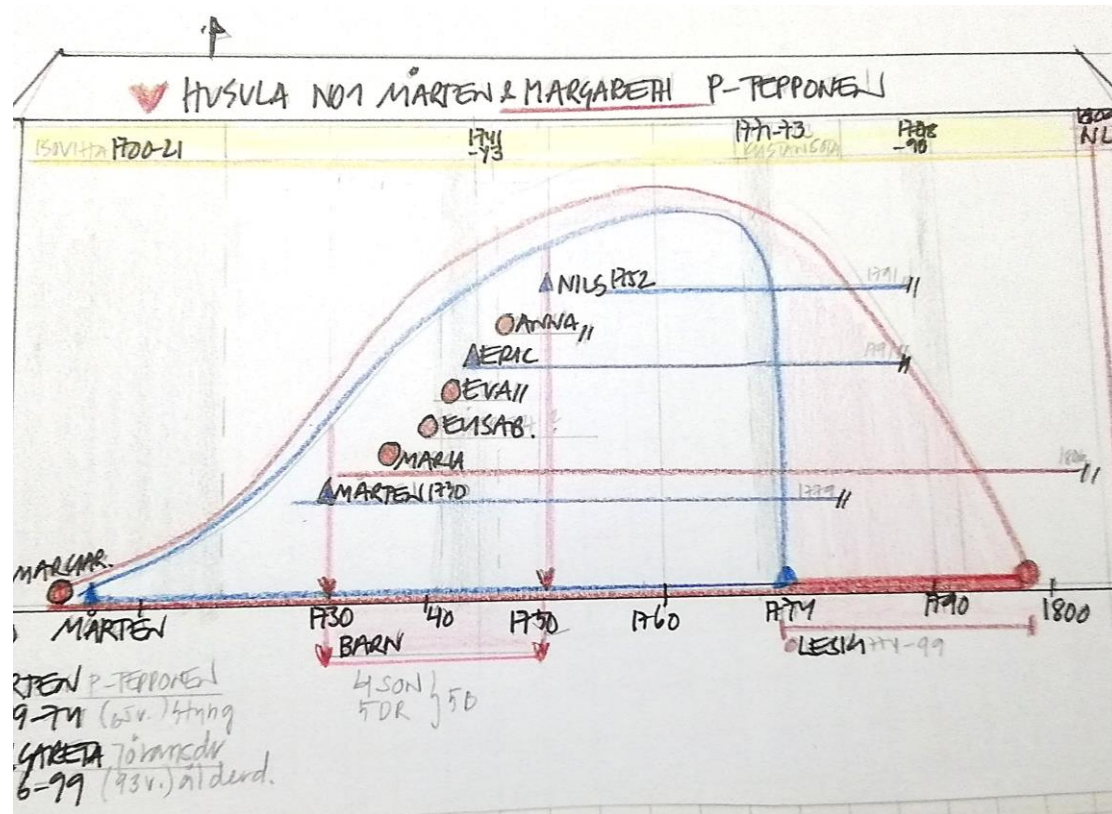 HUSULA NO1 MÅRTEN & MARGARETH P-TEPPONEN
ISOVIHA 1700-21
1741
-43
1771-73
1788
-90
1800
NL
NILS 1752
1791
ANNA
ERIC
1791
EVA
ELISAB.
MARIA
MÅRTEN 1730
1779
MARGAR.
MÅRTEN
1730
'40
1750
1760
1774
1790
1800
BARN
LESKI 1774-99
RTEN P-TEPPONEN
9-74 (65v.) Styng
4 SON
5 DR
GARETA Jöransdr
6=99 (93v.) ålderd.